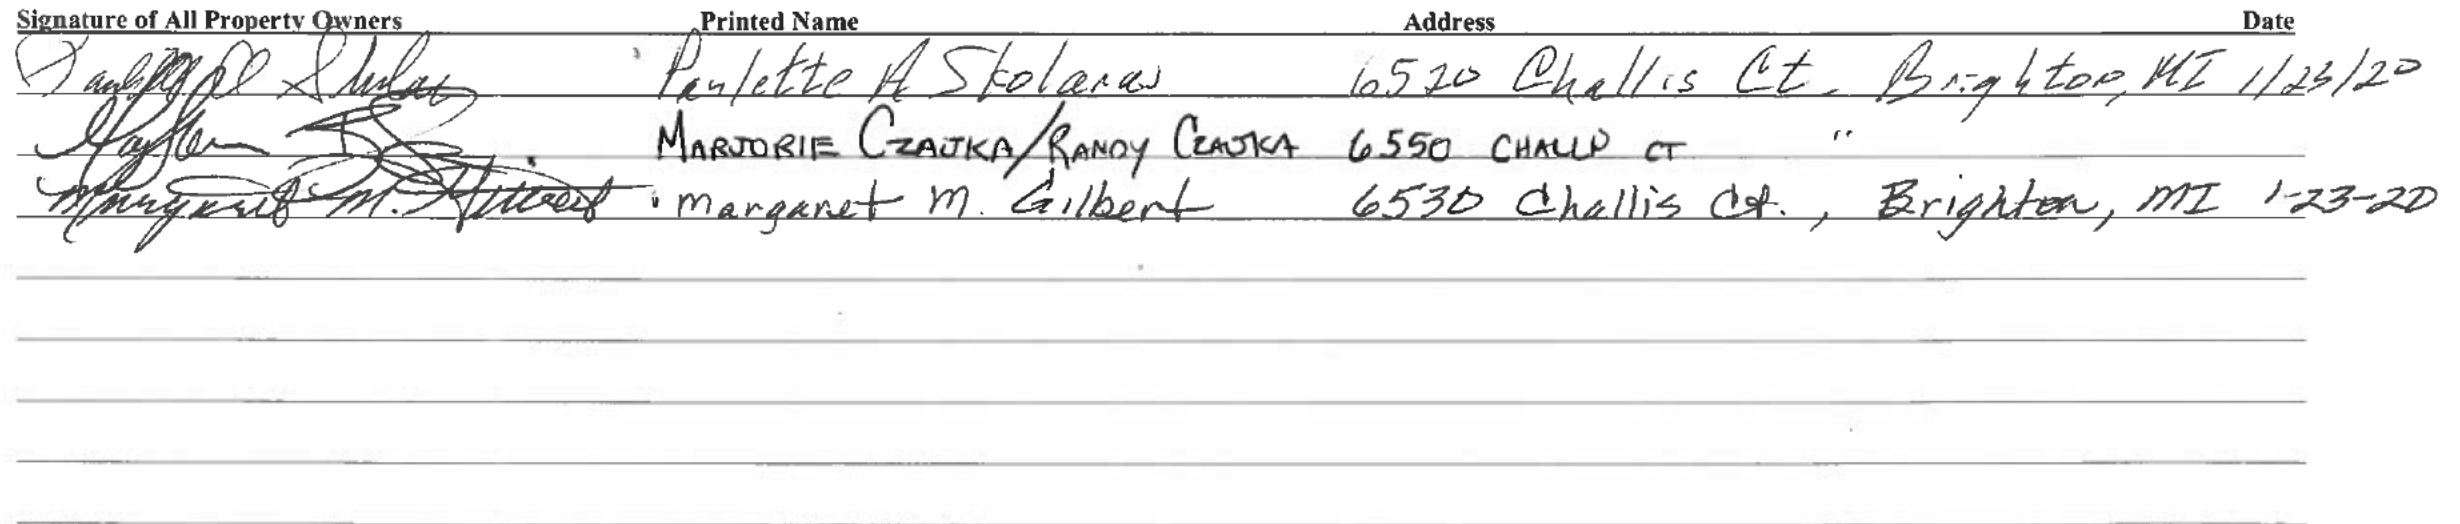 Signature of All Property Owners Printed Name Address Date
Paulette A Skolarus 6520 Challis Ct. Brighton, MI 1/23/20
MARJORIE CZAJKA/RANDY CZAJKA 6550 CHALLIS CT "
Margaret M. Gilbert margaret m. Gilbert 6530 Challis Ct., Brighton, MI 1-23-20